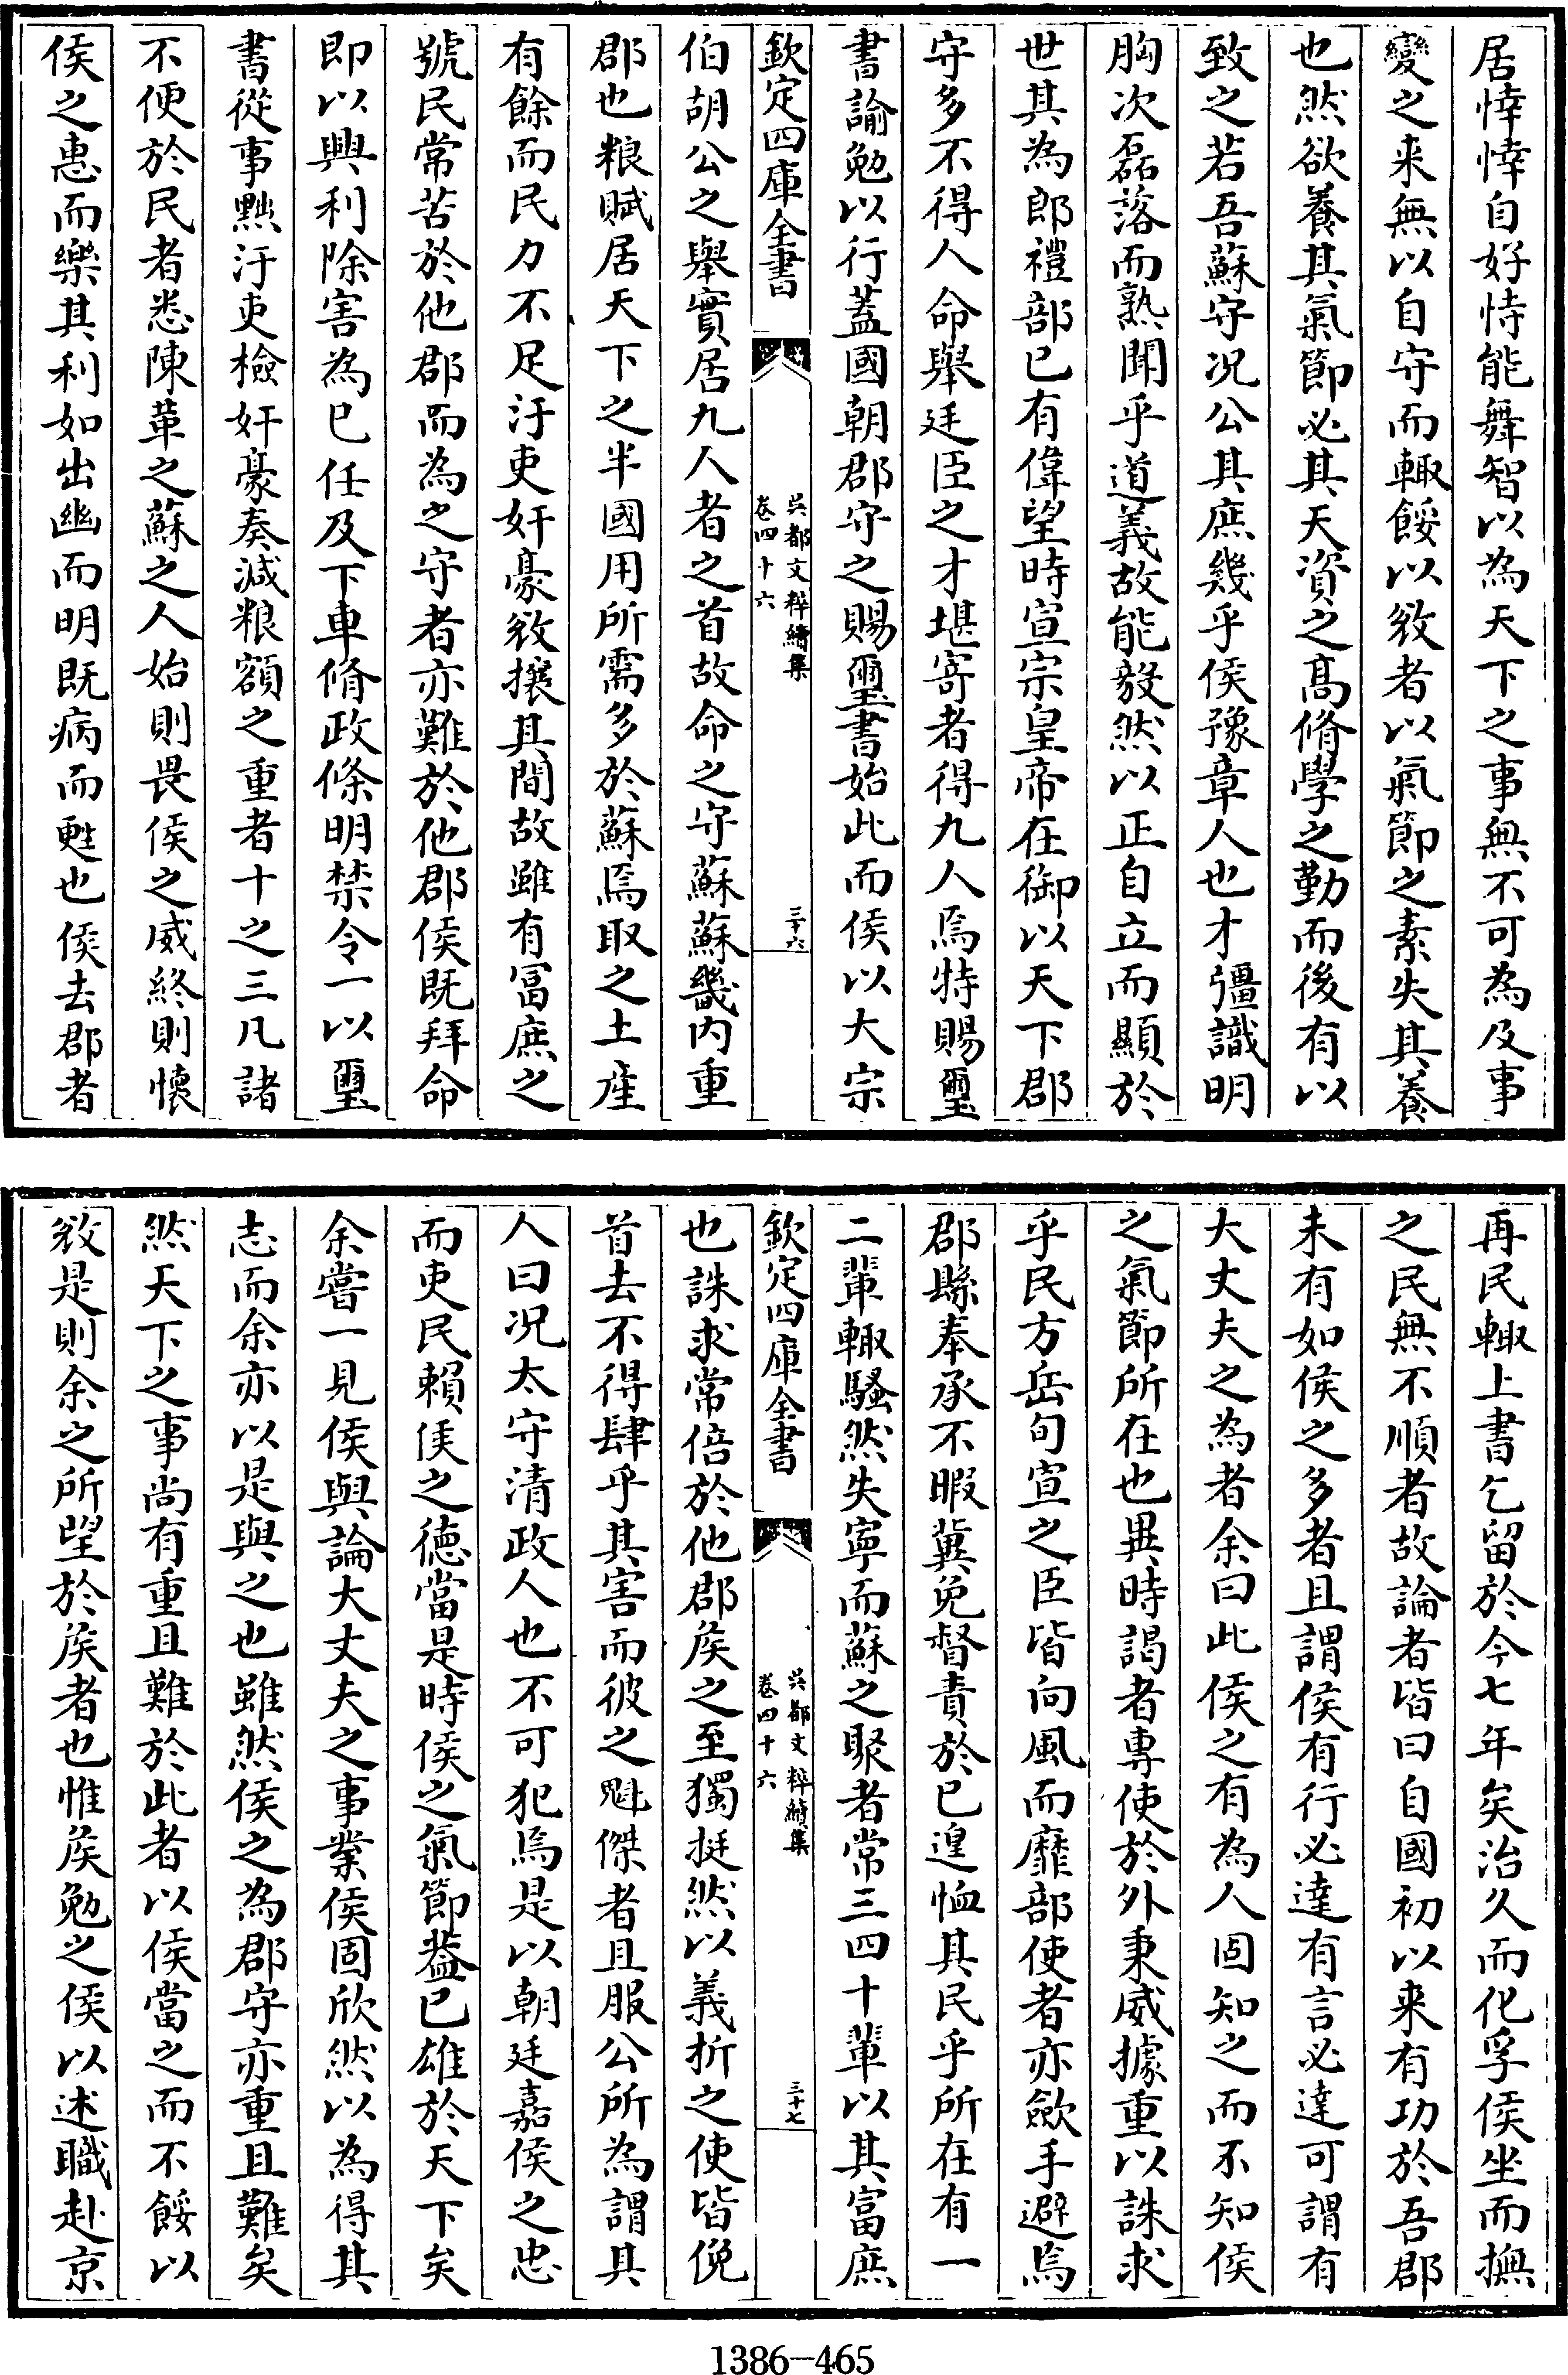 居悻悻自好恃能舞智以為天下之事無不可為及事
變之来無以自守而輙餒以㪇者以氣節之素失其養
也然欲養其氣節必其天資之髙脩學之勤而後有以
致之若吾蘇守况公其庶幾乎侯豫章人也才彊識明
胸次磊落而熟聞乎道義故能毅然以正自立而顯於
世其為郎禮部已有偉望時宣宗皇帝在御以天下郡
守多不得人命舉廷臣之才堪寄者得九人焉特賜璽
書諭勉以行蓋國朝郡守之賜璽書始此而侯以大宗
欽定四庫全書
吳都文粹續集
卷四十六
三十六
伯胡公之舉實居九人者之首故命之守蘇蘇畿内重
郡也粮賦居天下之半國用所需多於蘇焉取之土産
有餘而民力不足汙吏奸豪㪇攘其間故雖有冨庶之
號民常苦於他郡而為之守者亦難於他郡侯既拜命
即以興利除害為已任及下車脩政條明禁令一以璽
書從事黜汙吏檢奸豪奏減粮額之重者十之三凡諸
不便於民者悉陳革之蘇之人始則畏侯之威終則懐
侯之惠而樂其利如出幽而明既病而甦也侯去郡者
再民輙上書乞留於今七年矣治久而化孚侯坐而撫
之民無不順者故論者皆曰自國初以来有功於吾郡
未有如侯之多者且謂侯有行必達有言必達可謂有
大丈夫之為者余曰此侯之有為人固知之而不知侯
之氣節所在也異時謁者專使於外秉威據重以誅求
乎民方岳旬宣之臣皆向風而靡部使者亦歛手避焉
郡縣奉承不暇兾免督責於已遑恤其民乎所在有一
二輩輙騷然失寧而蘇之聚者常三四十輩以其富庶
欽定四庫全書
吳都文粹續集
卷四十六
三十七
也誅求常倍於他郡侯之至獨挺然以義折之使皆俛
首去不得肆乎其害而彼之魁傑者且服公所為謂其
人曰况太守清政人也不可犯焉是以朝廷嘉侯之忠
而吏民賴侯之德當是時侯之氣節葢已雄於天下矣
余嘗一見侯與論大丈夫之事業侯固欣然以為得其
志而余亦以是與之也雖然侯之為郡守亦重且難矣
然天下之事尚有重且難於此者以侯當之而不餒以
㪇是則余之所望於侯者也惟侯勉之侯以述職赴京
1386-465